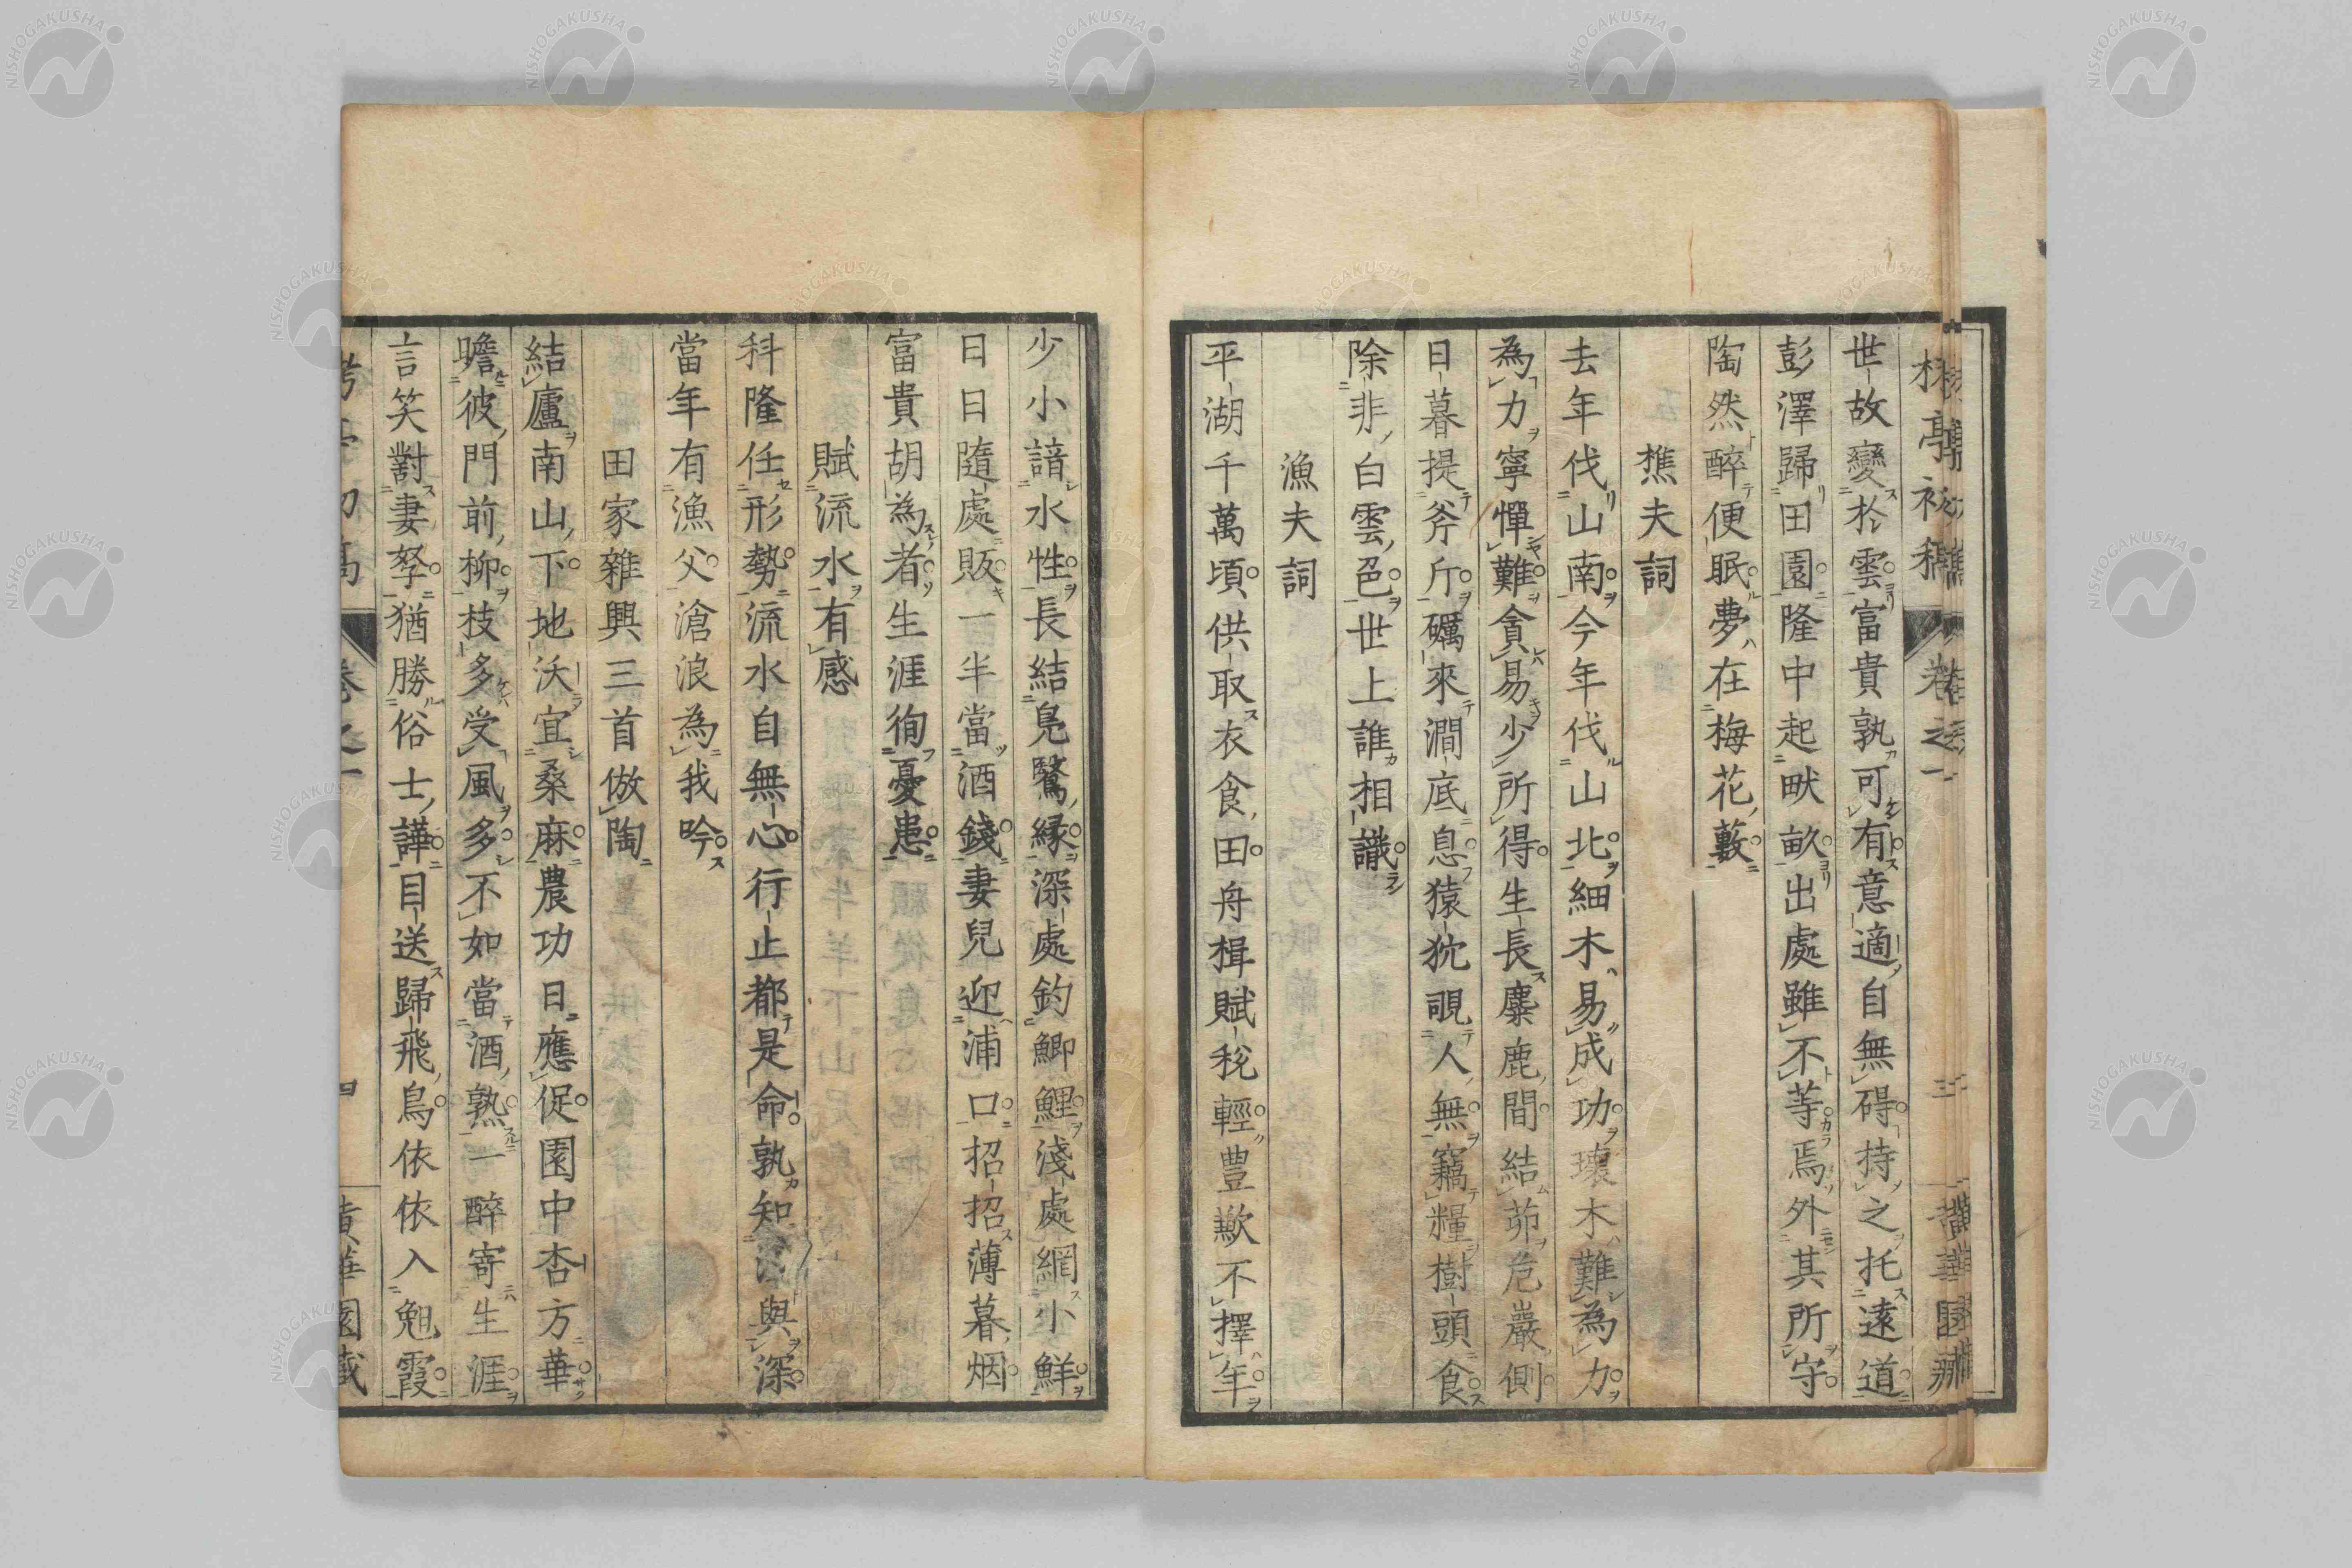 世故變於雲富貴孰可有意適自無碍持之托遠道
彭澤歸田園隆中起畎畝出處雖不等焉外其所守
陶然醉便眠夢在梅花藪
樵夫詞
去年伐山南今年伐山北細木易成功壞木難為力
為力寧憚難貪易少所得生長麋鹿間結茆危巖側
日暮提斧斤礪來澗底息猿狖覗人無竊糧樹頭食
除非白雲邑世上誰相識
漁夫詞
平湖千萬頃供取衣食田舟楫賦稅輕豊歉不擇年
少小諳水性長結鳧鷖緣深處釣鯽鯉淺處網小鮮
日日隨處販一半當酒錢妻兒迎浦口招招薄暮烟
富貴胡為者生涯徇憂患
賦流水有感
科隆任形勢流水自無心行止都是命孰知與深
當年有漁父滄浪為我吟
田家雜興三首倣陶
結廬南山下地沃宜桑麻農功日應促園中杏方華
瞻彼門前柳枝多受風多不如當酒熟一醉寄生涯
言笑對妻孥猶勝俗士譁目送歸飛鳥依依入晚霞
卷之一
四
黄華園藏
NISHOGAKUSHA